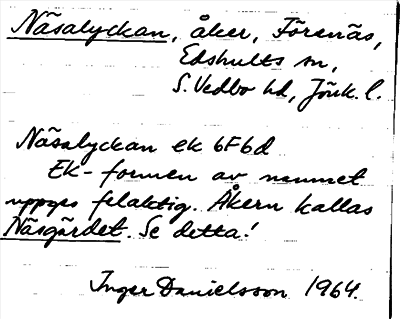 Näsalyckan, åker, Förenäs,
Edshults sn,
S. Vedbo hd, Jönk. l.
Näsalyckan ek 6F6d
EK-formen av namnet
uppges felaktig. Åkern kallas
Näsgärdet. Se detta!
Inger Danielsson 1964.